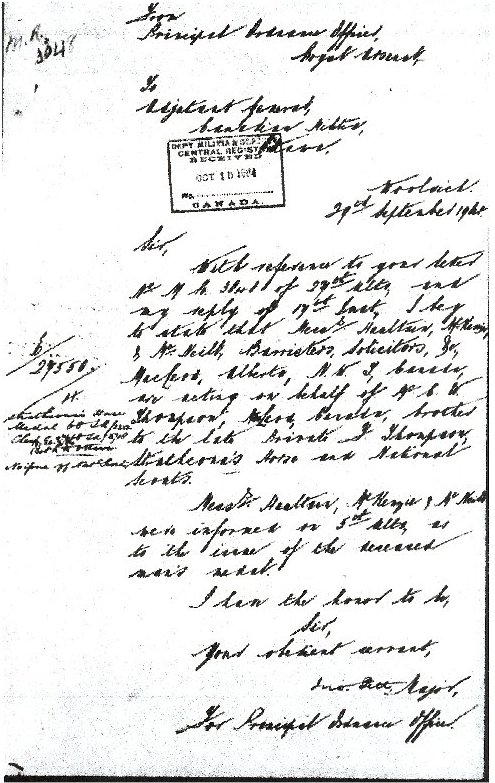 M.R.
3048
From
Principal Ordnance Officer,
Royal Arsenal,
To
Adjutant General,
Canadian Militia,
Ottawa.
DEPT MILITIA &
CENTRAL REGIST
RECEIVED
OCT 10 1904
No.
CANADA.
Woolwich.
29th September 1904
Sir,
With reference to your letter
No M.R. 3048 of 29th Ulto, and
my reply of 17th Inst, I beg
to state that Messrs Haultain, McKenzie
& McNeill, Barristers, Solicitors, &c,
MacLeod, Alberta, N.W.T, Canada,
are acting on behalf of Mr C.W.
Thompson, McLeod, Canada, brother
to the late Private F Thompson,
Strathcona's Horse and National
Scouts.
Messrs Haultain, McKenzie & McNeill
were informed on 5th Ulto, as
to the issue of the deceased
man's medal.
6/
29550.
Strathcona's Horse
Medal
I have the honor to be,
Sir,
Your obedient servant,
Major,
For Principal Ordnance Officer.